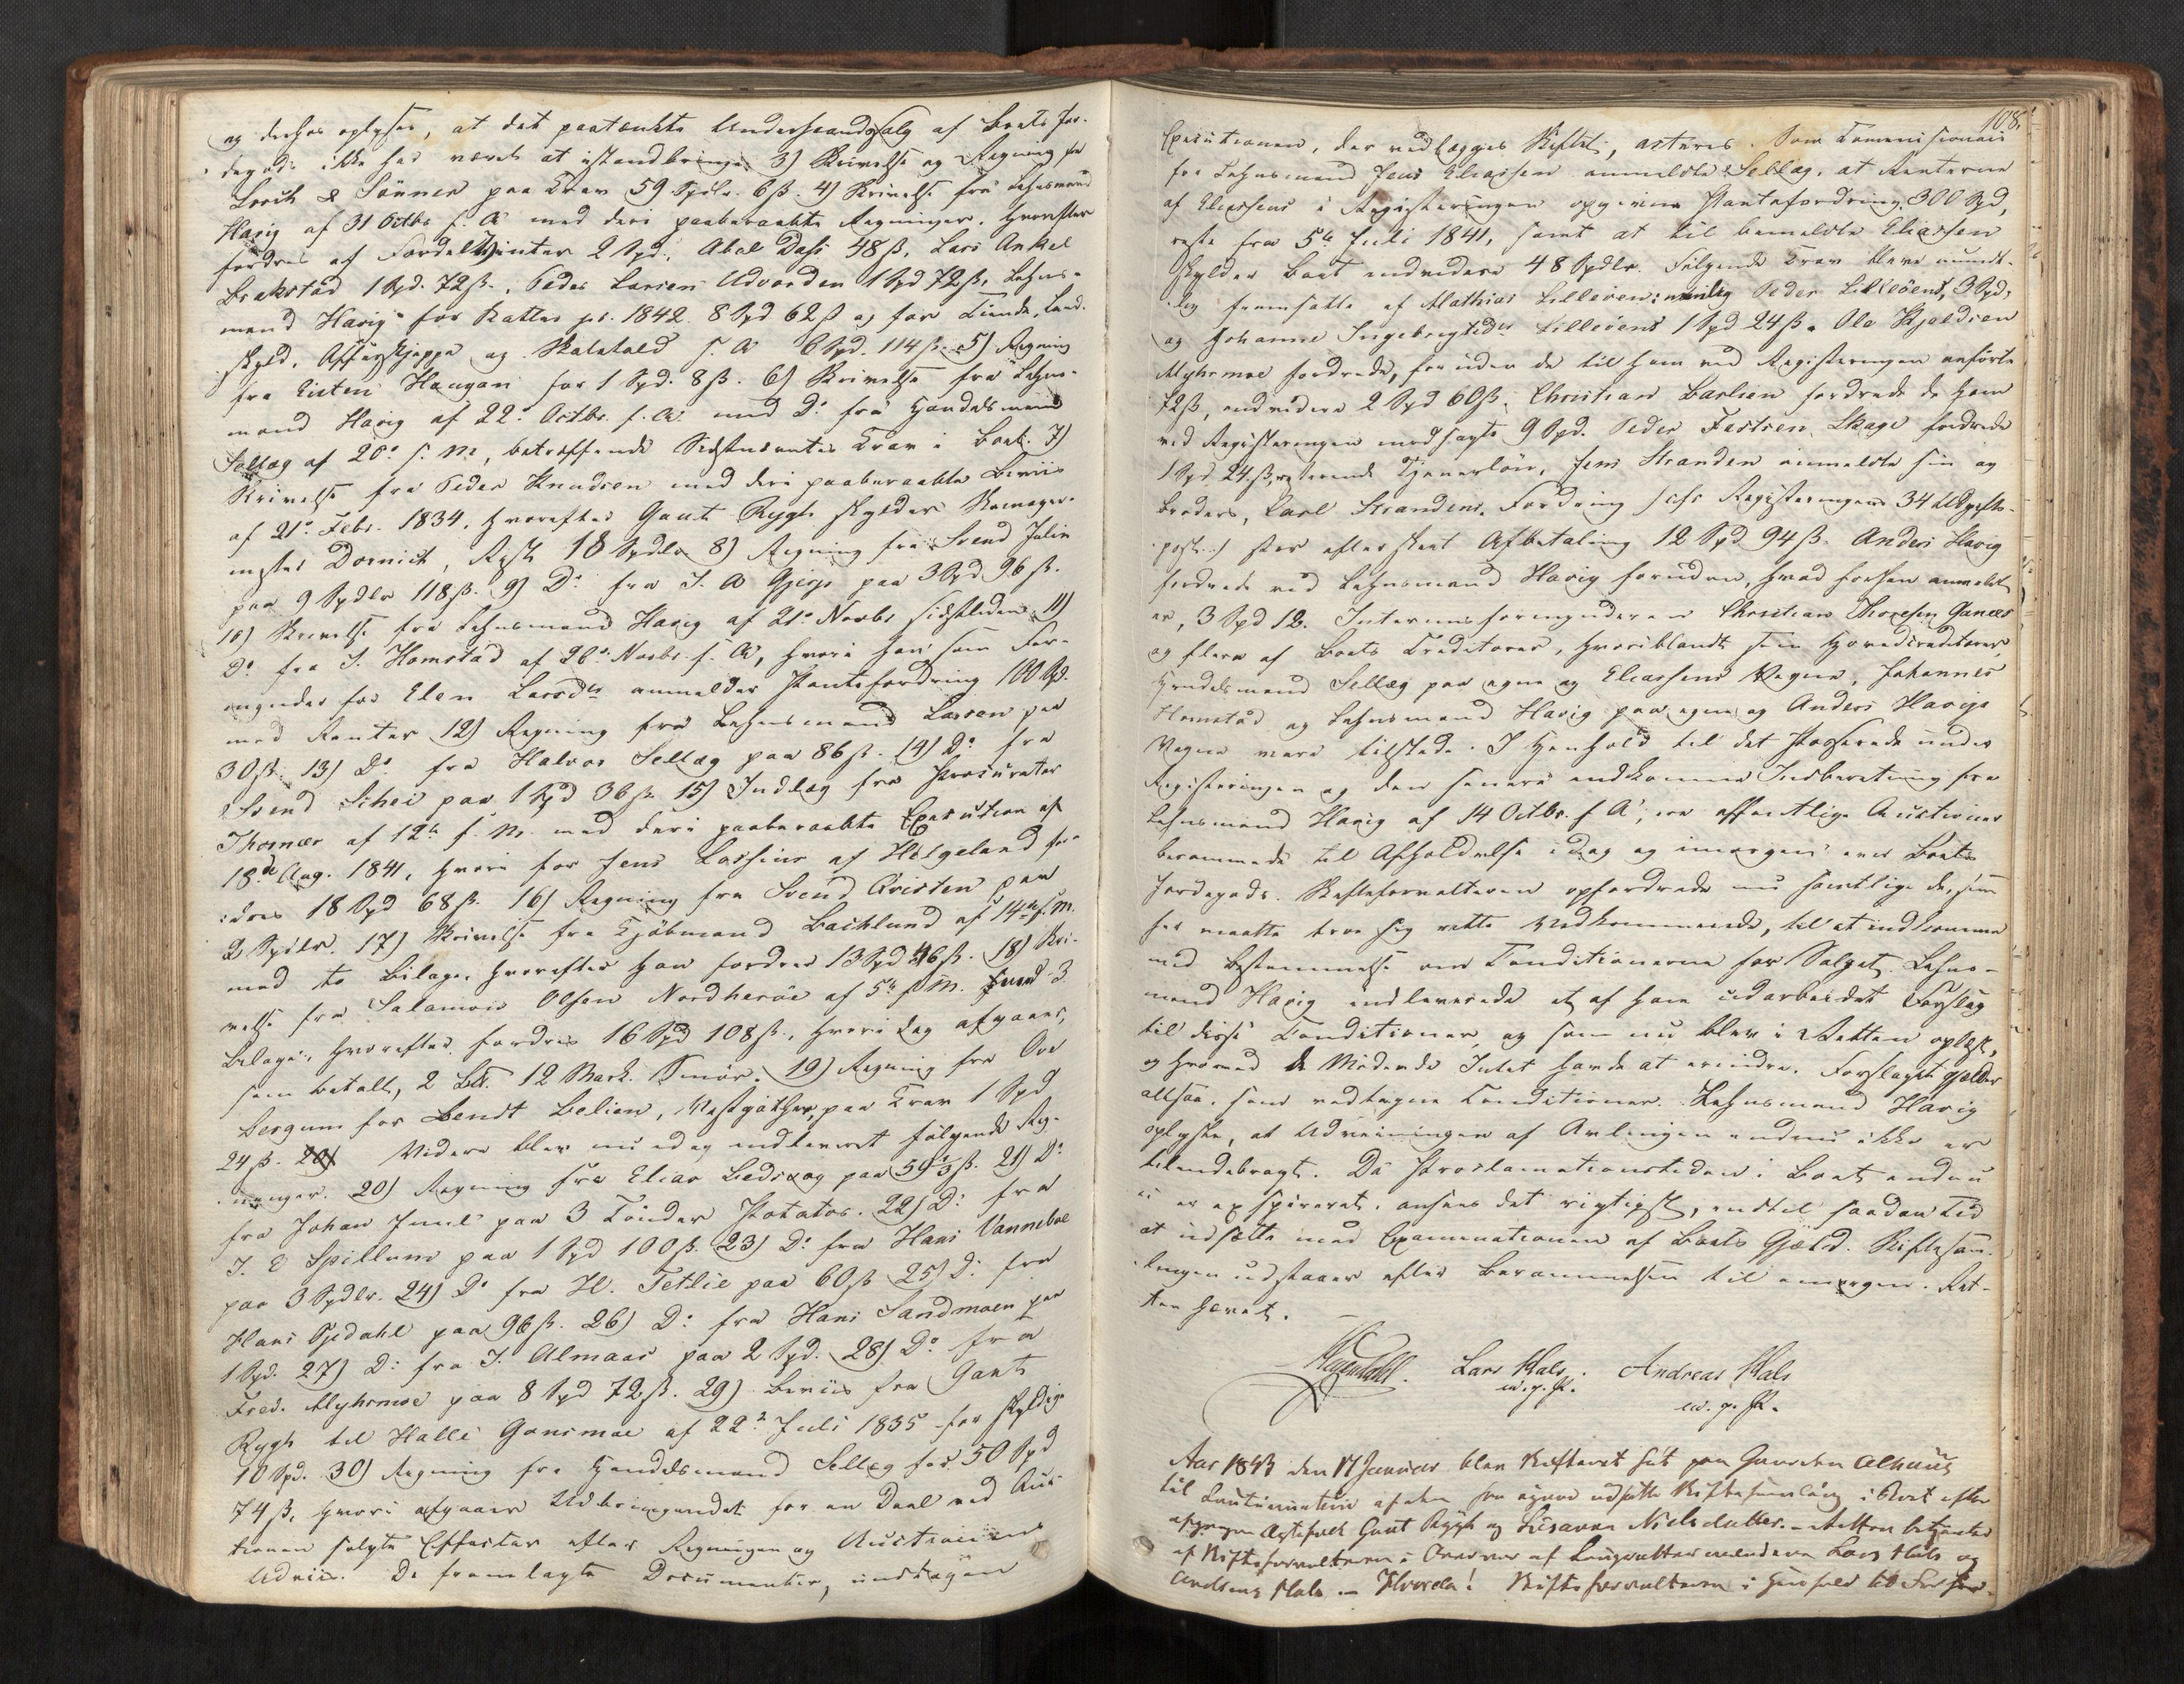 og derhos oplyser, at det paatænkte Underhaandssalg af Boets Jor-
degods ikke har været at istandbringe. 3) Skrivelse og Regning fra
Lorck & Sönner paa Krav 59 Spdlr. 6 ß. 4) Skrivelse fra Lehnsmand
Havig af 31 Octbr. f. A. med deri paaberaabte Regninger, hvorefter
fordres af Fordel Winter 2 Spd., Abel Dahs 48 ß, Lars Ankel
Brakstad 1 Spd. 72 ß., Peder Larsen Udvorden 1 Spd 72 ß, Lehns-
mand Havig for Skatter pr. 1842 8 Spd 62 ß og for Tiende, Land-
skyld, og Skatetold f. A. 6 Spd. 114 ß. 5) Regning
fra Eisten Haugan for 1 Spd. 8 ß. 6) Skrivelse fra Lehns-
mand Havig af 22. Octbr. f. A. med Do fra Handelsmand
Sellæg af 20. s. M., betreffende Sidstnævntes Krav i Boet. 7)
Skrivelse fra Peder Knudsen med deri paaberaabte Beviis
af 21. Febr. 1834, hvorefter Gaut Rygh skylder Skomager-
mester Dornick, Rest 18 Spdlr. 8) Regning fra Svend Jelin
paa 9 Spdlr 118 ß. 9) Do fra J. A Gjesje paa 3 Spd 96 ß.
10) Skrivelse fra Lehnsmand Havig af 21. Novbr sidstleden. 11)
Do fra J. Homstad af 26. Novbr. f. A, hvori han som For-
mynder for Elen Larsdr anmelder Pantefordring 100 Spd.
med Renter. 12) Regning fra Lehnsmand Larsen paa
30 ß. 13) Do fra Halvor Sellæg paa 86 ß. 14) Do fra
Svend Schei paa 1 Spd 36 ß. 15) Indlæg fra Procurator
Thomær af 12te f. M. med deri paaberaabte Execution af
18de Aug. 1841, hvori for Jens Lassens af Helgeland for-
dres 18 Spd 68 ß. 16) Regning fra Svend Qvisten paa
2 Spdlr. 17) Skrivelse fra Kjöbmand Bachlund af 14de f. M.
med to Bilage, hvorefter han fordrer 13 Spd 46 ß. 18) Skri-
velse fra Salamon Olsen Nordheröe af 5te f. M. med 3
Bilage, hvorefter fordres 16 Spd 108 ß., hvori dog afgaaer,
som betalt, 2 12 Mark. Smör. 19) Regning fra Ove
Bergum for Bendt Belien, paa Krav 1 Spd
24 ß. 20) Videre blev nu idag indleveret fölgende Reg-
ninger. 20) Regning fra Elias paa 59 ß. 21) Do
fra Johan Juul paa 3 Tönder Potatos. 22) Do fra
J. E Spillum paa 1 Spd 100 ß. 23) Do fra Hans Vanneboe
paa 3 Spdlr. 24) Do fra H. Tetlie paa 60 ß 25) Do fra
Hans Opdahl paa 96 ß. 26) Do fra Hans Sandmoen paa
1 Spd. 27) Do fra J. Almaas paa 2 Spd. 28) Do fra
Fred. Myhrmoe paa 8 Spd 72 ß. 29) Beviis fra Gaut
Rygh til Halle Gansmoe af 22. Juli 1835 for skyldig
10 Spd. 30) Regning fra Handelsmand Sellæg for 50 Spd
74 ß, hvori afgaaer Udbringendet for en Deel ved Auc-
tionen solgte Effecter efter Regningen og Auctionens
Udviis. De fremlagte Documenter, undtagen
108.
Executionen, der vedlægges Skiftet, acteres. Som Commissionair
for Lehnsmand Jens Eliassen anmeldte Sellæg, at Renterne
af Eliassens i Registeringen opgivne Pantefordring, 300 Spd,
reste fra 5te Juli 1841, samt at til bemeldte Eliassen
skylder Boet endvidere 48 Spdlr. Fölgende Krav bleve mundt-
lig fremsatte af Mathias Lilleöen: nemlig Peder Lilleöens, 3 Spd,
og Johanne Ingebrigtsdr Lilleöens 1 Spd 24 ß. Ole Kjeldsen
Myhrmoe fordrede, foruden de til ham ved Registeringen anförte
72 ß, endvidere 2 Spd 60 ß. Christian Barlien fordrede de ham
ved Registeringen modsagte 9 Spd. Peder Fastsen Skage fordrede
1 Spd. 24 ß, resterende Tjenerlön, Jens Stranden anmeldte sin og
Broders, Carl Strandens, Fordring (cfr Registeringens 34 Udgifts-
post.) stor efter skeet Afbetaling 12 Spd 94 ß. Anders Havig
fordrede ved Lehnsmand Havig foruden, hvad forhen anmeldt
er, 3 Spd 12. Interimsformynderen Christian Thoresen Ganes
og flere af Boets Creditorer, hvoriblandt som Hovedcreditorer,
Handelsmand Sellæg paa egne og Eliassens Vegne, Johannes
Homstad og Lehnsmand Havig paa egne og Anders Havigs
Vegne vare tilstede. I Henhold til det Passerede under
Registeringen og den senere indkomne Indberetning fra
Lehnsmand Havig af 14 Octbr. f A, var offentlige Auctioner
berammede til Afholdelse idag og imorgen over Boets
Jordegods. Skifteforvalteren opfordrede nu samtlige de, som
her maatte troe sig rette Vedkommende, til at indkomme
med Bestemmelse om Conditionerne for Salget. Lehns-
mand Havig indleverede et af ham udarbeidet Forslag
til disse Conditioner, og som nu blev i Retten oplæst,
og hvormod de Mödende Intet havde at erindre. Forslaget gjelder
altsaa, som vedtagne Conditioner. Lehnsmand Havig
oplyste, at Udviisningen af Avlingen endnu ikke er
tilendebragt. Da Proclamationstiden i Boet endnu
ei er expireret, ansees det rigtigst, indtil saadan Tid
at udsætte med Examinationen af Boets Gjæld. Skiftesam-
lingen udstaaer efter Berammelsen til imorgen. Ret-
ten hævet.
Lars Hals. Andreas Hals
m. p. P. m. p. P.
Aar 1843 den 17 Januar blev Skifteret sat paa Gaarden Alhuus
til Continuation af den fra igaar udsatte Skiftesamling i Boet efter
afgangne Ægtefolk Gaut Rygh og Susanna Nielsdatter. – Retten betjentes
af Skifteforvalteren i Overvær af Laugrettesmændene Lars Hals og
Andreas Hals – Hvorda! Skifteforvalteren i Henhold til